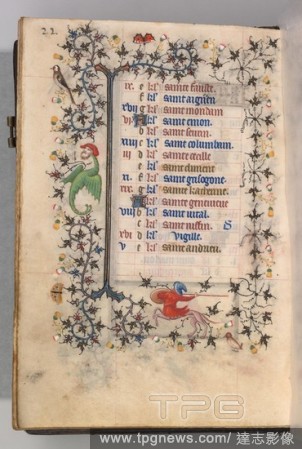 22.
ix. e kl' sainte fauste.
f kl' saint aignen
xvii g kl' saint mondum
vi A kl' saint omon.
b kl' saint seurin.
xiiii c kl' saint columban.
iii d kl' sainte cecille
e kl' saint climent
xi. f kl' saint grisogone.
xix. g kl' sainte katherine.
A kl' sainte geneuieue
viii b kl' saint vital.
c kl'
xvi d kl' vigille.
v e kl' saint andrieu.
TPG
www.tpgnews.com/達志影像